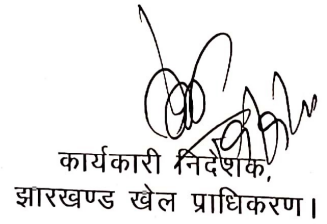 कार्यकारी निदेशक,
झारखण्ड खेल प्राधिकरण।